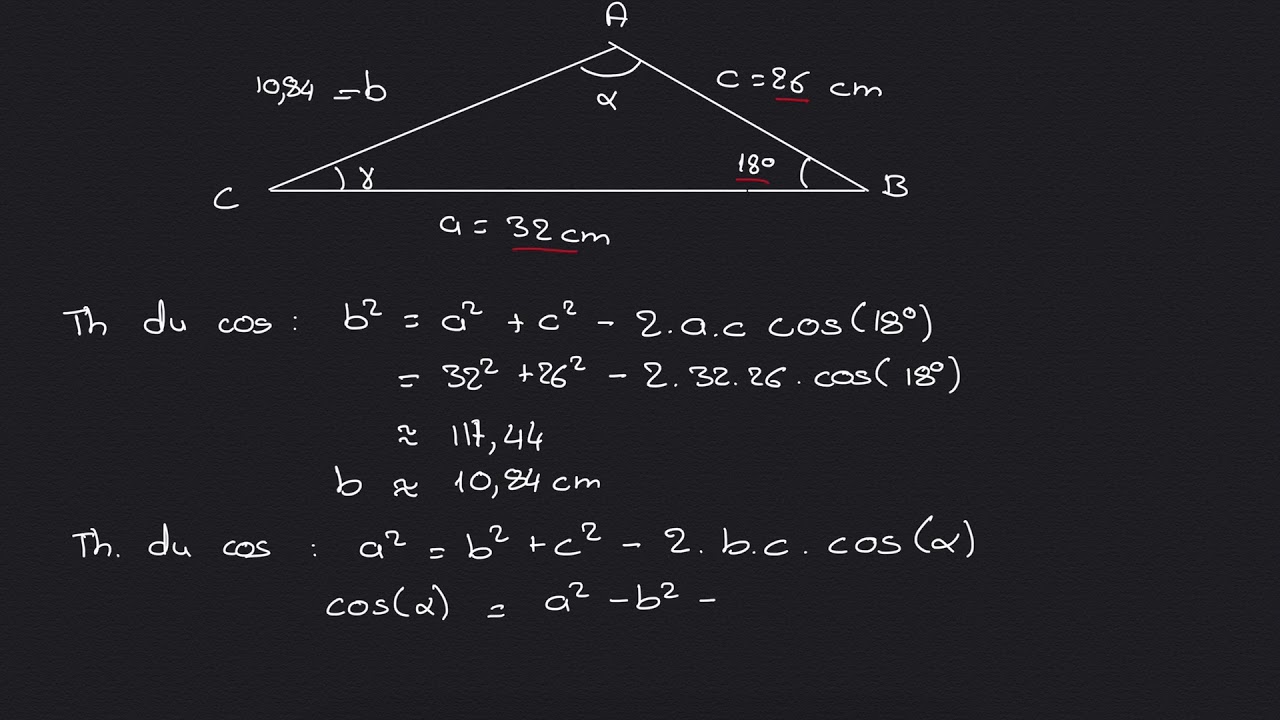 A
10,84 = b
c = 26 cm
α
γ
18°
C
B
a = 32 cm
Th du cos : b² = a² + c² - 2.a.c cos(18°)
= 32² + 26² - 2.32.26.cos(18°)
≈ 117,44
b ≈ 10,84 cm
Th. du cos : a² = b² + c² - 2.b.c.cos(α)
cos(α) = a² - b² -